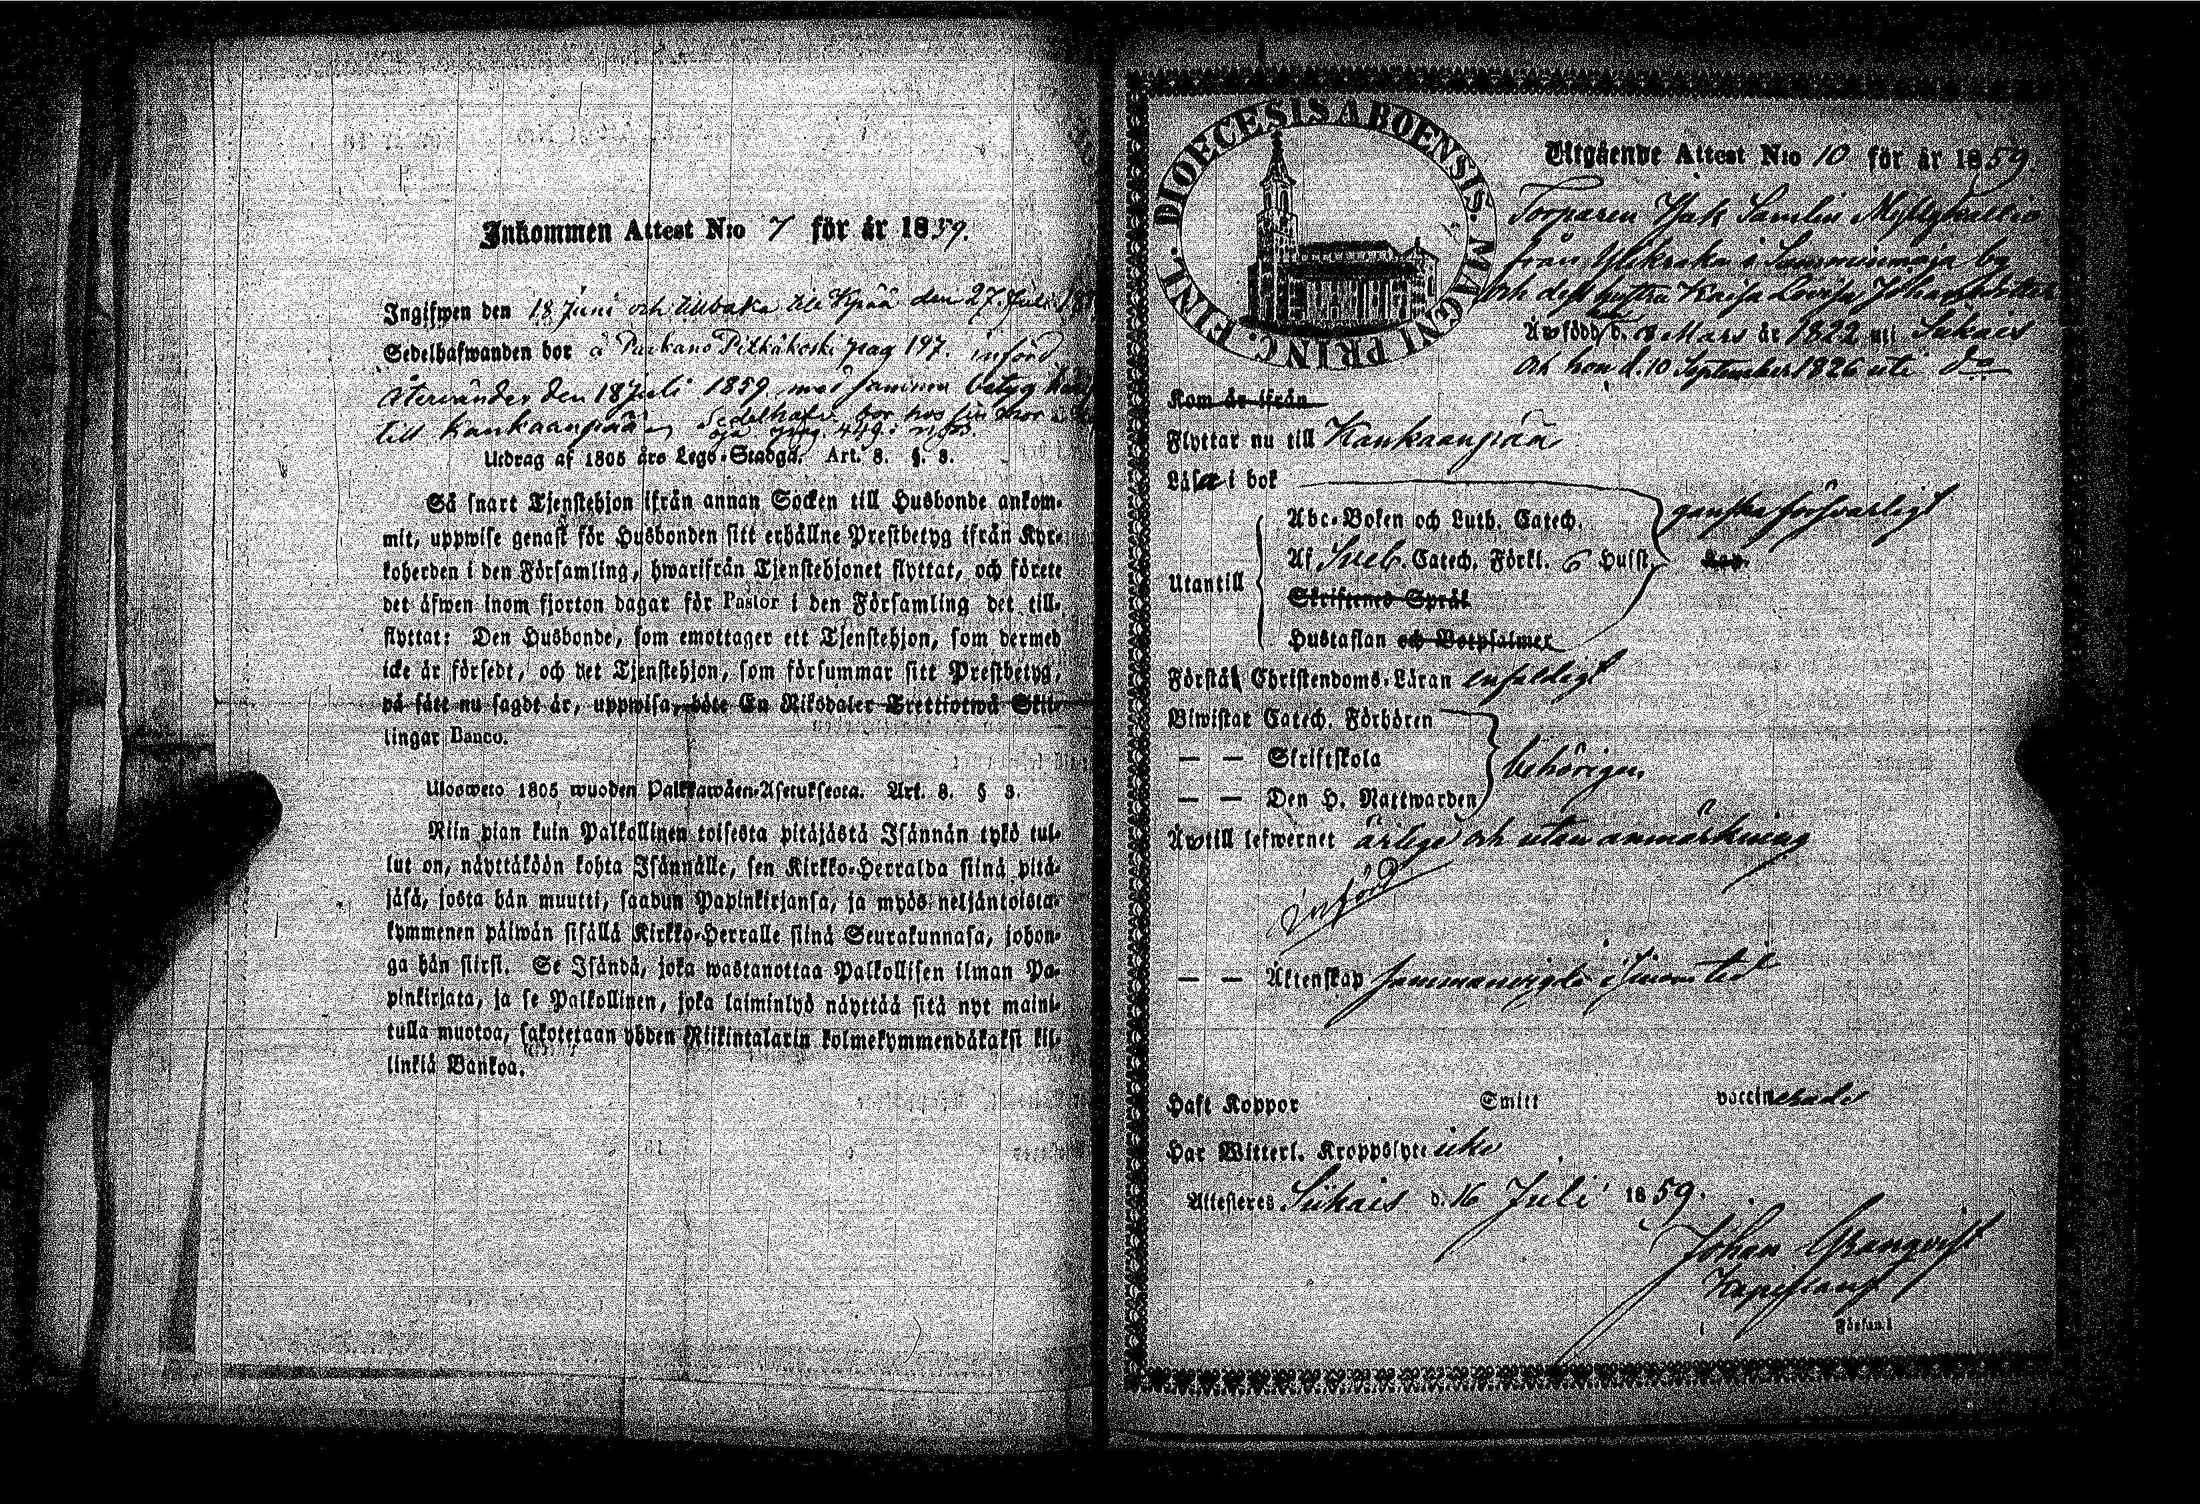 Inkommen Attest N:o 7 för år 1859.
Ingifwen den 18 Juni och tillbaka till Kpää den 27. Juli
Sedelhafwanden bor å Parkano Pitkäkoski pag 197. införd
återvänder den 18 Juli 1859. med samma betyg
till Kankaanpää Sedelhafv. bor hos sin mor
pag. 449.
Utdrag af 1805 års Lego-Stadga. Art. 8. §. 8.
Så snart Tjenstehjon ifrån annan Socken till Husbonde ankom-
mit, uppwise genast för Husbonden sitt erhållne Prestbetyg ifrån Kyr-
koherden i den Församling, hwarifrån Tjenstehjonet flyttat, och förete
det äfwen inom fjorton dagar för Pastor i den Församling det till-
flyttat: Den Husbonde, som emottager ett Tjenstehjon, som dermed
icke är försedt, och det Tjenstehjon, som försummar sitt Prestbetyg,
på sätt nu sagdt är, uppwisa, böte En Riksdaler Trettiotwå Skil-
lingar Banco.
Ulosweto 1805 wuoden Palkkawäen-Asetuksesta. Art. 8. § 8.
Niin pian kuin Palkollinen toisesta pitäjästä Isännän tykö tul-
lut on, näyttäköön kohta Isännälle, sen Kirkko-Herralda siinä pitä-
jäsä, josta hän muutti, saadun Papinkirjansa, ja myös neljäntoista-
kymmenen päiwän sisällä Kirkko-Herralle siinä Seurakunnasa, johon-
ga hän siirsi. Se Isändä, joka wastanottaa Palkollisen ilman Pa-
pinkirjata, ja se Palkollinen, joka laiminlyö näyttää sitä nyt maini-
tulla muotoa, sakotetaan yhden Riikintalarin kolmekymmendäkaksi kil-
linkiä Bankoa.
DIOECESIS ABOENSIS. MAGNI PRINC. FINL.
Utgående Attest N:o 10 för år 1859.
Torparen Isak Samlin Myllykallio
från Yliknaka i Sammi by
och dess hustru Kaisa Lovisa Johansdotter
Är född d. 8 Mars år 1822 uti Siikais
och hon d. 10 September 1826 uti do
Kom är ifrån
Flyttar nu till Kankaanpää
Läsa i bok
Abc-Boken och Luth. Catech. ganska försvarligt
Utantill
Af Sveb. Catech. Förkl. 6 Hufst. Kap.
Skriftenes Språk
Hustaflan och Botpsalmer
Förstå Christendoms-Läran enfaldigt
Biwistat Catech. Förhören
— — Skriftskola behörigen
— — Den H. Nattwarden
Är till lefwernet ärlige och utan anmärkning
Införd
— — Äktenskap sammanvigde i sinom tid
Haft Koppor Smitt vaccinerade
Har Witterl. Kroppslyte icke
Attesteres Siikais d. 16 Juli 1859.
Johan Granqvist
Kapellan
i Församl.